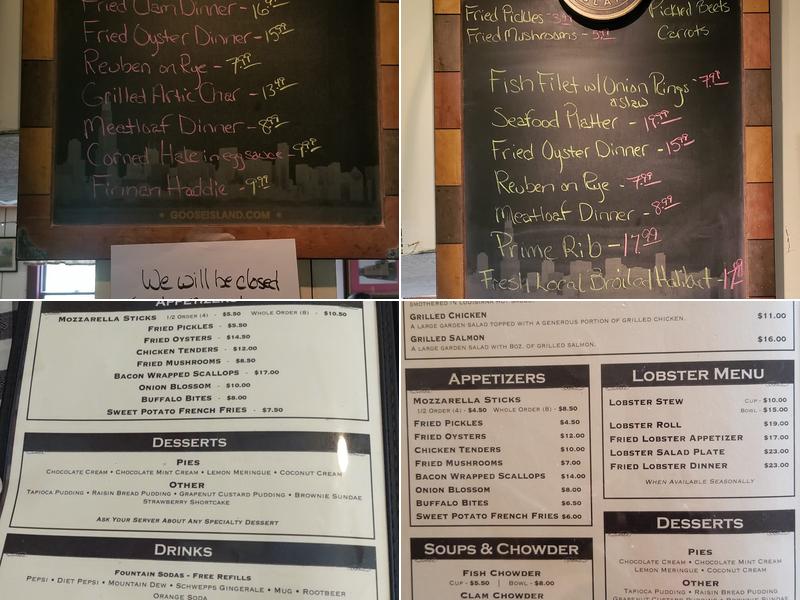 Fried Clam Dinner - 16.99
Fried Oyster Dinner - 15.99
Reuben on Rye - 7.99
Grilled Artic Char - 13.99
Meatloaf Dinner - 8.99
Corned Hake in egg sauce - 9.99
Finnan Haddie - 9.99
• GOOSEISLAND.COM •
We will be closed
Fried Pickles - 3.99
Fried Mushrooms - 5.99
Pickled Beets
Carrots
Fish Filet w/ Onion Rings - 7.99
& slaw
Seafood Platter - 19.99
Fried Oyster Dinner - 15.99
Reuben on Rye - 7.99
Meatloaf Dinner - 8.99
Prime Rib - 17.99
Fresh Local Broiled Halibut -
APPETIZERS
MOZZARELLA STICKS 1/2 ORDER (4) - $5.50 WHOLE ORDER (8) - $10.50
FRIED PICKLES - $5.50
FRIED OYSTERS - $14.50
CHICKEN TENDERS - $12.00
FRIED MUSHROOMS - $8.50
BACON WRAPPED SCALLOPS - $17.00
ONION BLOSSOM - $10.00
BUFFALO BITES - $8.00
SWEET POTATO FRENCH FRIES - $7.50
DESSERTS
PIES
CHOCOLATE CREAM • CHOCOLATE MINT CREAM • LEMON MERINGUE • COCONUT CREAM
OTHER
TAPIOCA PUDDING • RAISIN BREAD PUDDING • GRAPENUT CUSTARD PUDDING • BROWNIE SUNDAE
STRAWBERRY SHORTCAKE
ASK YOUR SERVER ABOUT ANY SPECIALTY DESSERT
DRINKS
FOUNTAIN SODAS - FREE REFILLS
PEPSI • DIET PEPSI • MOUNTAIN DEW • SCHWEPPS GINGERALE • MUG • ROOTBEER
ORANGE SODA
SMOTHERED IN LOUISIANA HOT SAUCE
GRILLED CHICKEN $11.00
A LARGE GARDEN SALAD TOPPED WITH A GENEROUS PORTION OF GRILLED CHICKEN.
GRILLED SALMON $16.00
A LARGE GARDEN SALAD WITH 8OZ. OF GRILLED SALMON.
APPETIZERS
MOZZARELLA STICKS
1/2 ORDER (4) - $4.50 WHOLE ORDER (8) - $8.50
FRIED PICKLES $4.50
FRIED OYSTERS $12.00
CHICKEN TENDERS $10.00
FRIED MUSHROOMS $7.00
BACON WRAPPED SCALLOPS $14.00
ONION BLOSSOM $8.00
BUFFALO BITES $6.50
SWEET POTATO FRENCH FRIES $6.00
SOUPS & CHOWDER
FISH CHOWDER
CUP - $5.50 | BOWL - $8.00
CLAM CHOWDER
LOBSTER MENU
LOBSTER STEW CUP - $10.00
BOWL - $15.00
LOBSTER ROLL $19.00
FRIED LOBSTER APPETIZER $17.00
LOBSTER SALAD PLATE $23.00
FRIED LOBSTER DINNER $23.00
WHEN AVAILABLE SEASONALLY
DESSERTS
PIES
CHOCOLATE CREAM • CHOCOLATE MINT CREAM
LEMON MERINGUE • COCONUT CREAM
OTHER
TAPIOCA PUDDING • RAISIN BREAD PUDDING
GRAPENUT CUSTARD PUDDING • BROWNIE SUNDAE